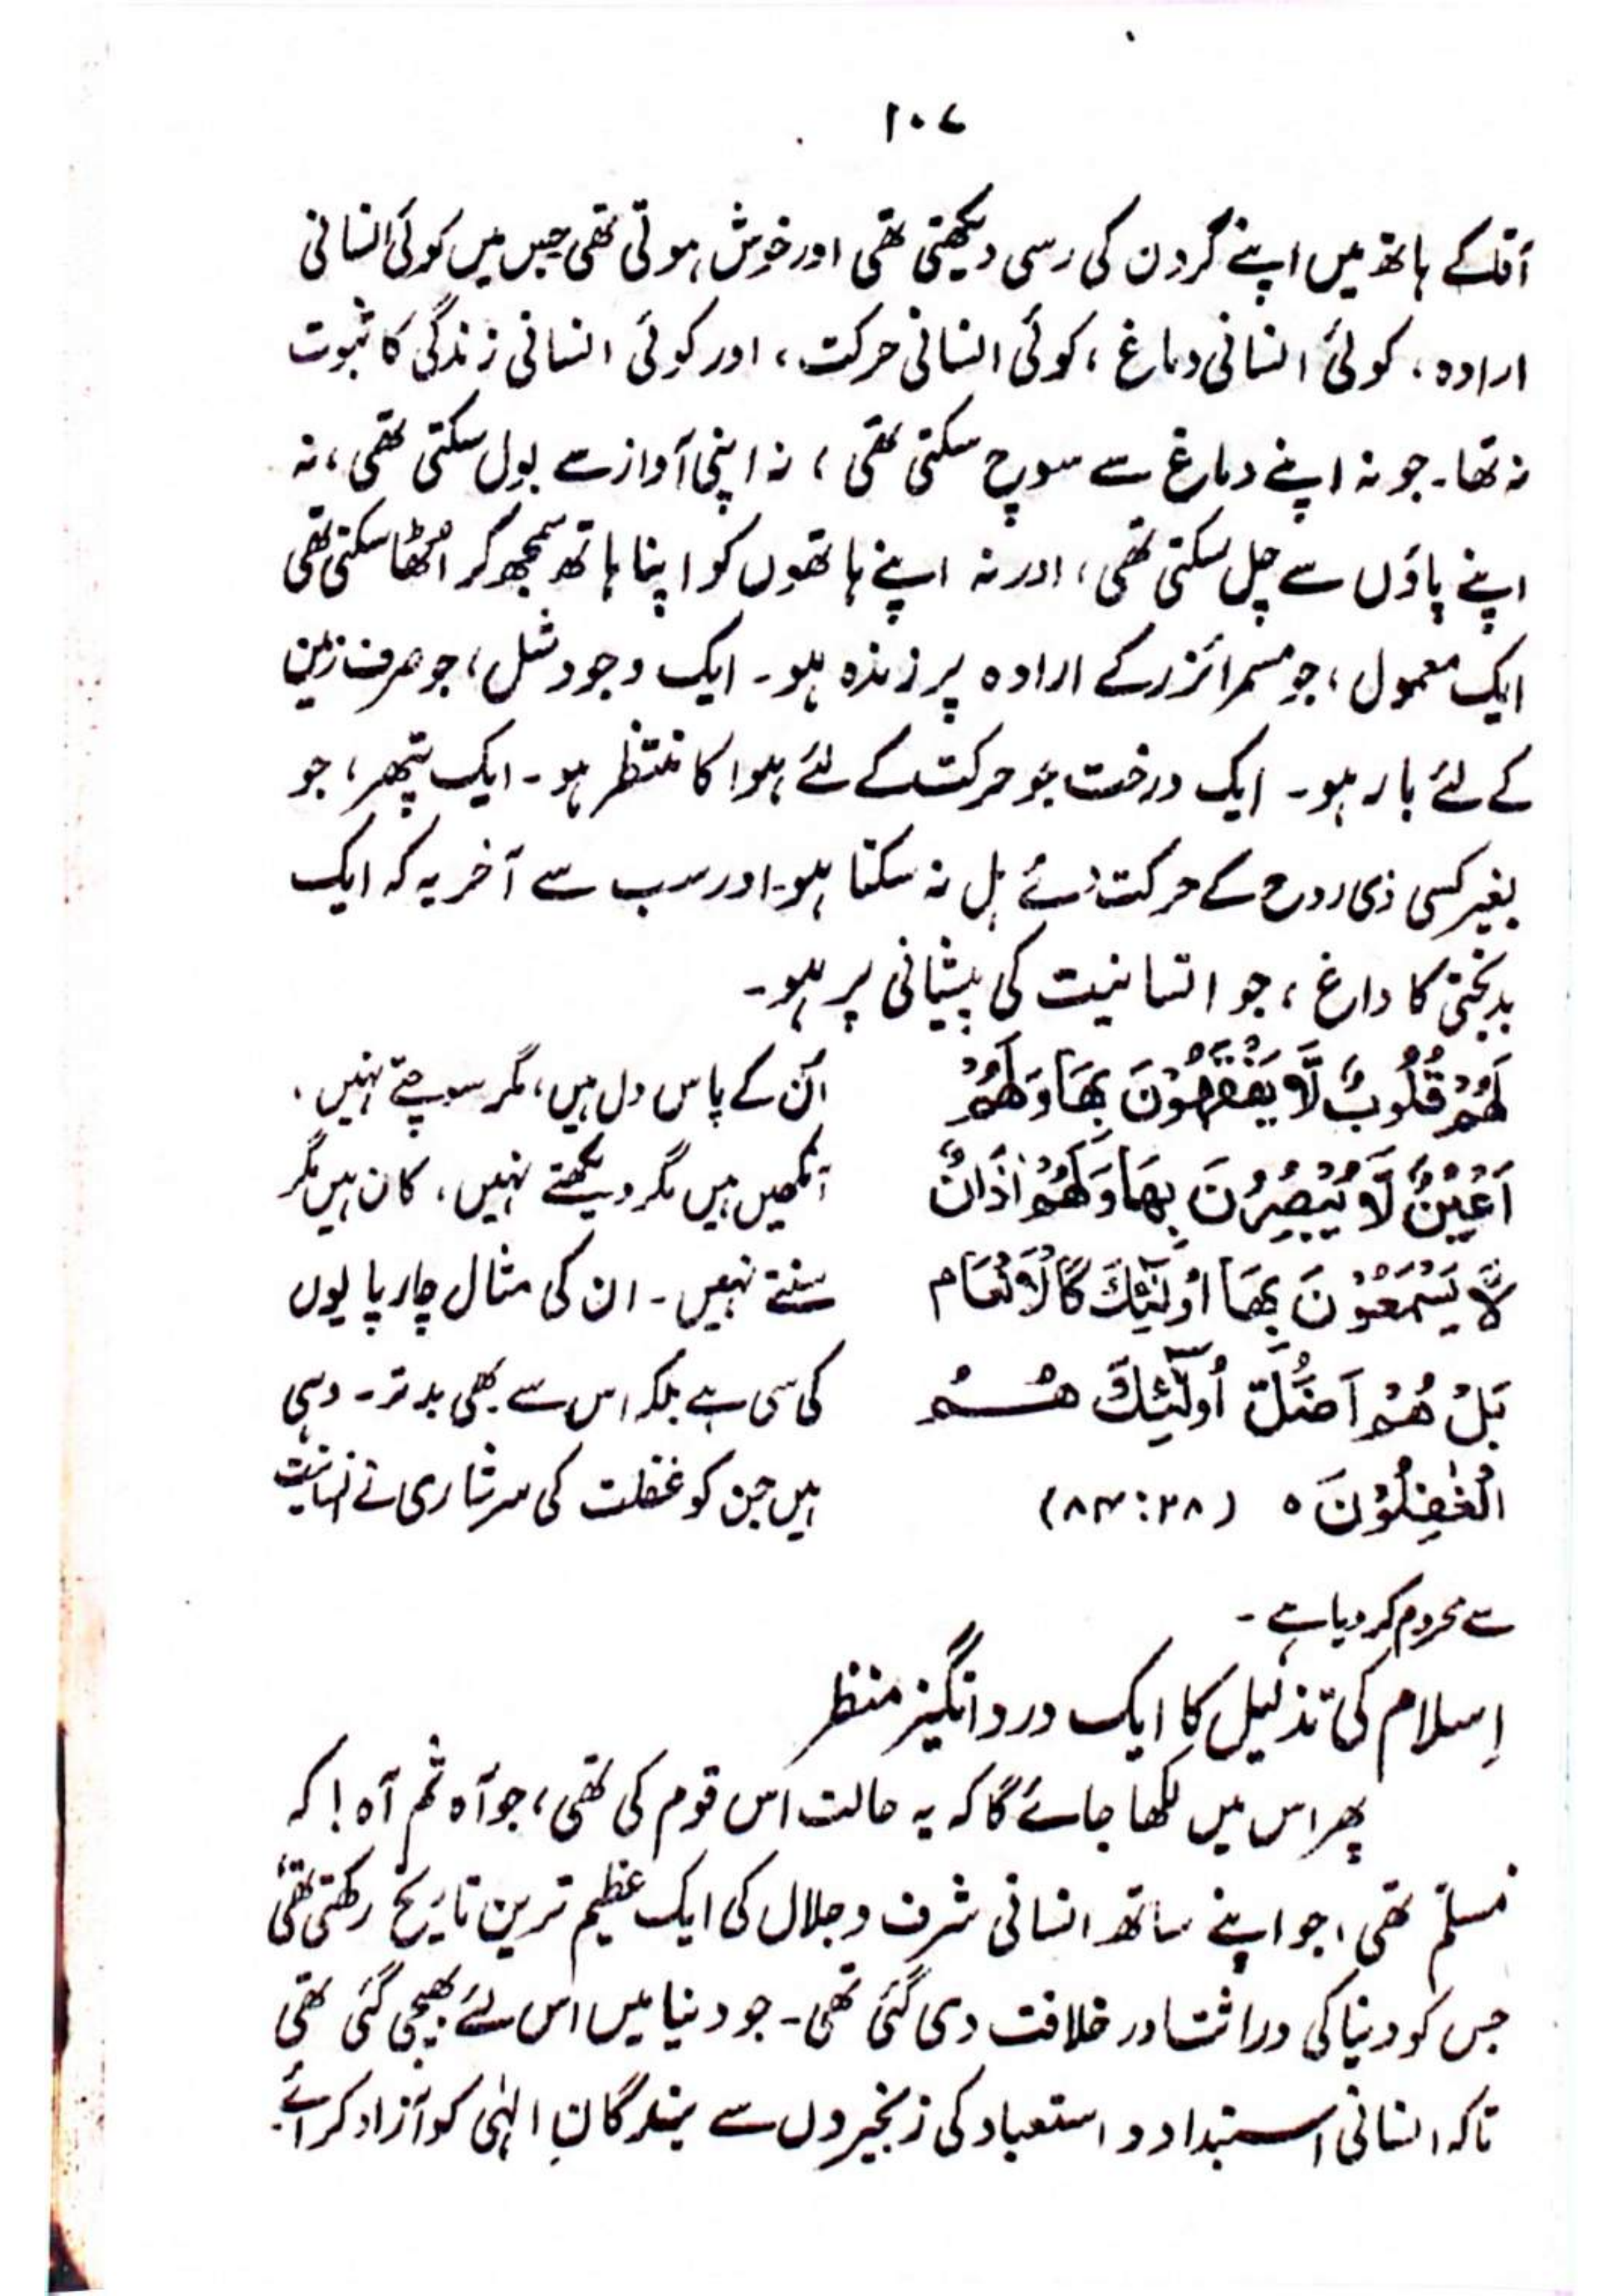 ۱۰۷
آقا کے ہاتھ میں اپنے گردن کی رسی دیکھتی تھی اور خوش ہوتی تھی جس میں کوئی انسانی
ارادہ، کوئی انسانی دماغ، کوئی انسانی حرکت، اور کوئی انسانی زندگی کا ثبوت
نہ تھا۔ جو نہ اپنے دماغ سے سوچ سکتی تھی، نہ اپنی آواز سے بول سکتی تھی، نہ
اپنے پاؤں سے چل سکتی تھی، اور نہ اپنے ہاتھوں کو اپنا ہاتھ سمجھ کر اُٹھا سکتی تھی
ایک معمول، جو مسمرائزر کے ارادہ پر زندہ ہو۔ ایک وجود شل، جو صرف زمین
کے لئے بار ہو۔ ایک درخت جو حرکت کے لئے ہوا کا منتظر ہو۔ ایک پتھر، جو
بغیر کسی ذی روح کے حرکت دئے ہل نہ سکتا ہو۔ اور سب سے آخر یہ کہ ایک
بدبختی کا داغ، جو انسانیت کی پیشانی پر ہو۔
لَهُمْ قُلُوبٌ لَّا يَفْقَهُوْنَ بِهَا وَلَهُمْ اُن کے پاس دل ہیں، مگر سوچتے نہیں۔
اَعْيُنٌ لَّا يُبْصِرُوْنَ بِهَا وَلَهُمْ اٰذَانٌ آنکھیں ہیں مگر دیکھتے نہیں، کان ہیں مگر
لَّا يَسْمَعُوْنَ بِهَا اُولٰٓئِكَ كَالْاَنْعَام سنتے نہیں۔ ان کی مثال چارپایوں
بَلْ هُمْ اَضَلُّ اُولٰٓئِكَ هُمُ کی سی ہے بلکہ اس سے بھی بدتر۔ وہی
الْغٰفِلُوْنَ ہ (۸۳:۲۸) ہیں جن کو غفلت کی سرشاری نے انسانیت
سے محروم کر دیا ہے۔
اِسلام کی تذلیل کا ایک درد انگیز منظر
پھر اس میں لکھا جائے گا کہ یہ حالت اس قوم کی تھی، جو آہ ثم آہ! کہ
مُسلم تھی، جو اپنے ساتھ انسانی شرف و جلال کی ایک عظیم ترین تاریخ رکھتی تھی
جس کو دنیا کی وراثت اور خلافت دی گئی تھی۔ جو دنیا میں اس لئے بھیجی گئی تھی
تاکہ انسانی استبداد و استعباد کی زنجیروں سے بندگانِ الٰہی کو آزاد کرائے۔